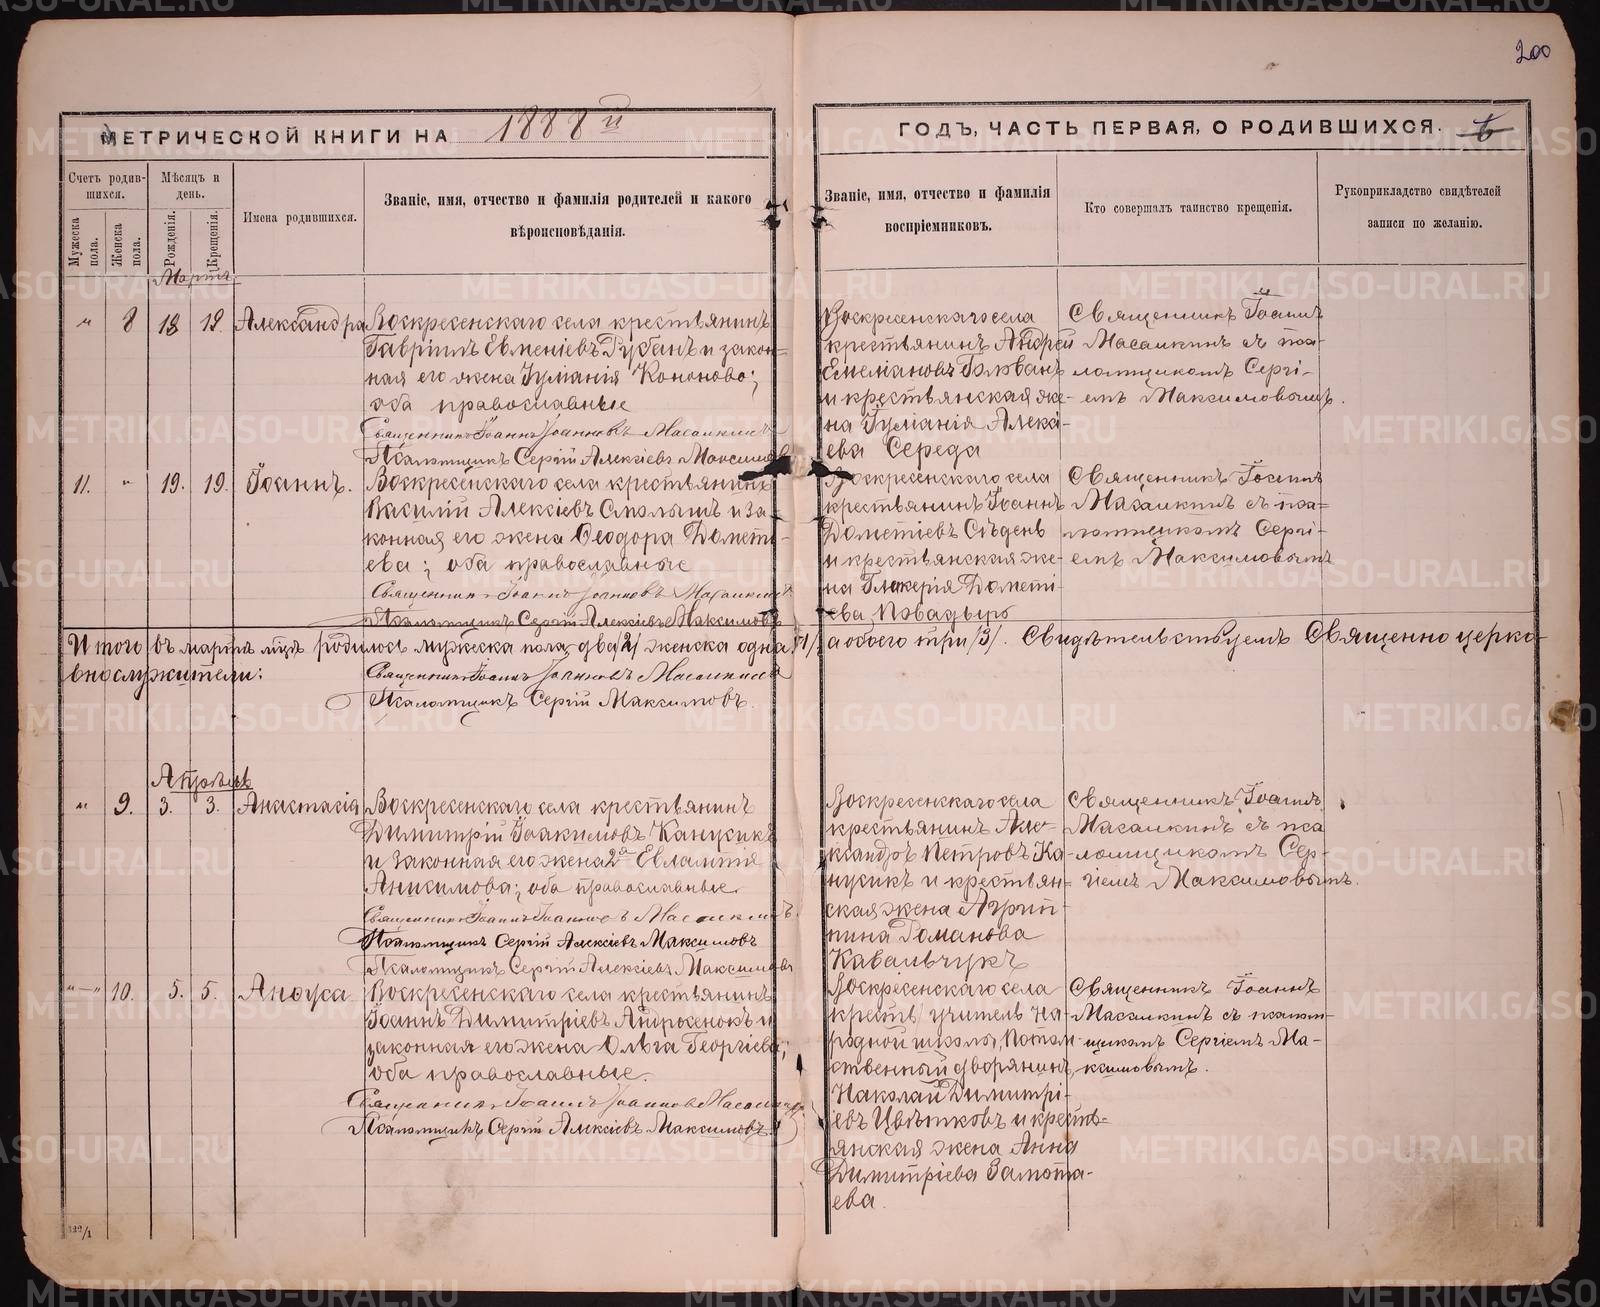 200
МЕТРИЧЕСКОЙ КНИГИ НА 1888й
ГОДЪ, ЧАСТЬ ПЕРВАЯ, О РОДИВШИХСЯ.
Счетъ родив-
шихся.
Мужеска
пола.
Женска
пола.
Мѣсяцъ и
день.
Рожденія.
Крещенія.
Имена родившихся.
Званіе, имя, отчество и фамилія родителей и какого
вѣроисповѣданія.
Званіе, имя, отчество и фамилія
воспріемниковъ.
Кто совершалъ таинство крещенія.
Рукоприкладство свидѣтелей
записи по желанію.
Мартъ
" 8 18 19. Александра
Воскресенскаго села крестьянинъ
Гавріилъ Евменіевъ Губанъ и закон-
ная его жена Іуліанія Кононово;
оба православные
Священникъ Іоаннъ Іоанновъ Масалкинъ
Псаломщикъ Сергій Алексіевъ Максимовъ
Воскресенскаго села
крестьянинъ Андрей
Емеліановъ
и крестьянская же-
на Іуліанія Алексі-
ева Середа
Священникъ Іоаннъ
Масалкинъ съ пса-
ломщикомъ Сергі-
емъ Максимовымъ.
11. " 19. 19. Іоаннъ.
Воскресенскаго села крестьянинъ
Василій Алексіевъ и за-
конная его жена Ѳеодора Дометі-
ева; оба православные
Священникъ Іоаннъ Іоанновъ Масалкинъ
Псаломщикъ Сергій Алексіевъ Максимовъ
Воскресенскаго села
крестьянинъ Іоаннъ
Дометіевъ Сѣдень
и крестьянская же-
на Гликерія Дометі-
ева
Священникъ Іоаннъ
Масалкинъ съ пса-
ломщикомъ Сергі-
емъ Максимовымъ
Итого въ мартѣ мцѣ родилось мужеска пола два /2/ женска одна /1/ а обоего три /3/. Свидѣтельствуемъ Священно церко-
внослужители:
Священникъ Іоаннъ Іоанновъ Масалкинъ
Псаломщикъ Сергій Максимовъ.
Апрѣль
" 9. 3. 3. Анастасія
Воскресенскаго села крестьянинъ
Димитрій Іоакимовъ Канусикъ
и законная его жена 2я Евлампія
Анисимова; оба православные
Священникъ Іоаннъ Іоанновъ Масалкинъ.
Псаломщикъ Сергій Алексіевъ Максимовъ
Псаломщикъ Сергій Алексіевъ Максимовъ
Воскресенскаго села
крестьянинъ Але-
ксандръ Петровъ Ка-
нусикъ и крестьян-
ская жена Агрип-
пина Романова
Кавальчукъ
Священникъ Іоаннъ
Масалкинъ съ пса
ломщикомъ Сер-
гіемъ Максимовымъ.
"—" 10. 5. 5. Анѳуса
Воскресенскаго села крестьянинъ
Іоаннъ Димитріевъ Андросенокъ и
законная его жена Ольга Георгіева;
оба православные.
Священникъ Іоаннъ Іоанновъ Масалкинъ
Псаломщикъ Сергій Алексіевъ Максимовъ
Воскресенскаго села
крест/ учитель на-
родной школы, потом-
ственный дворянинъ
Николай Димитрі-
евъ Цвѣтковъ и кресть-
янская жена Анна
Димитріева Замота-
ева.
Священникъ Іоаннъ
Масалкинъ съ псалом-
щикомъ Сергіемъ Ма-
ксимовымъ.
METRIKI.GASO-URAL.RU